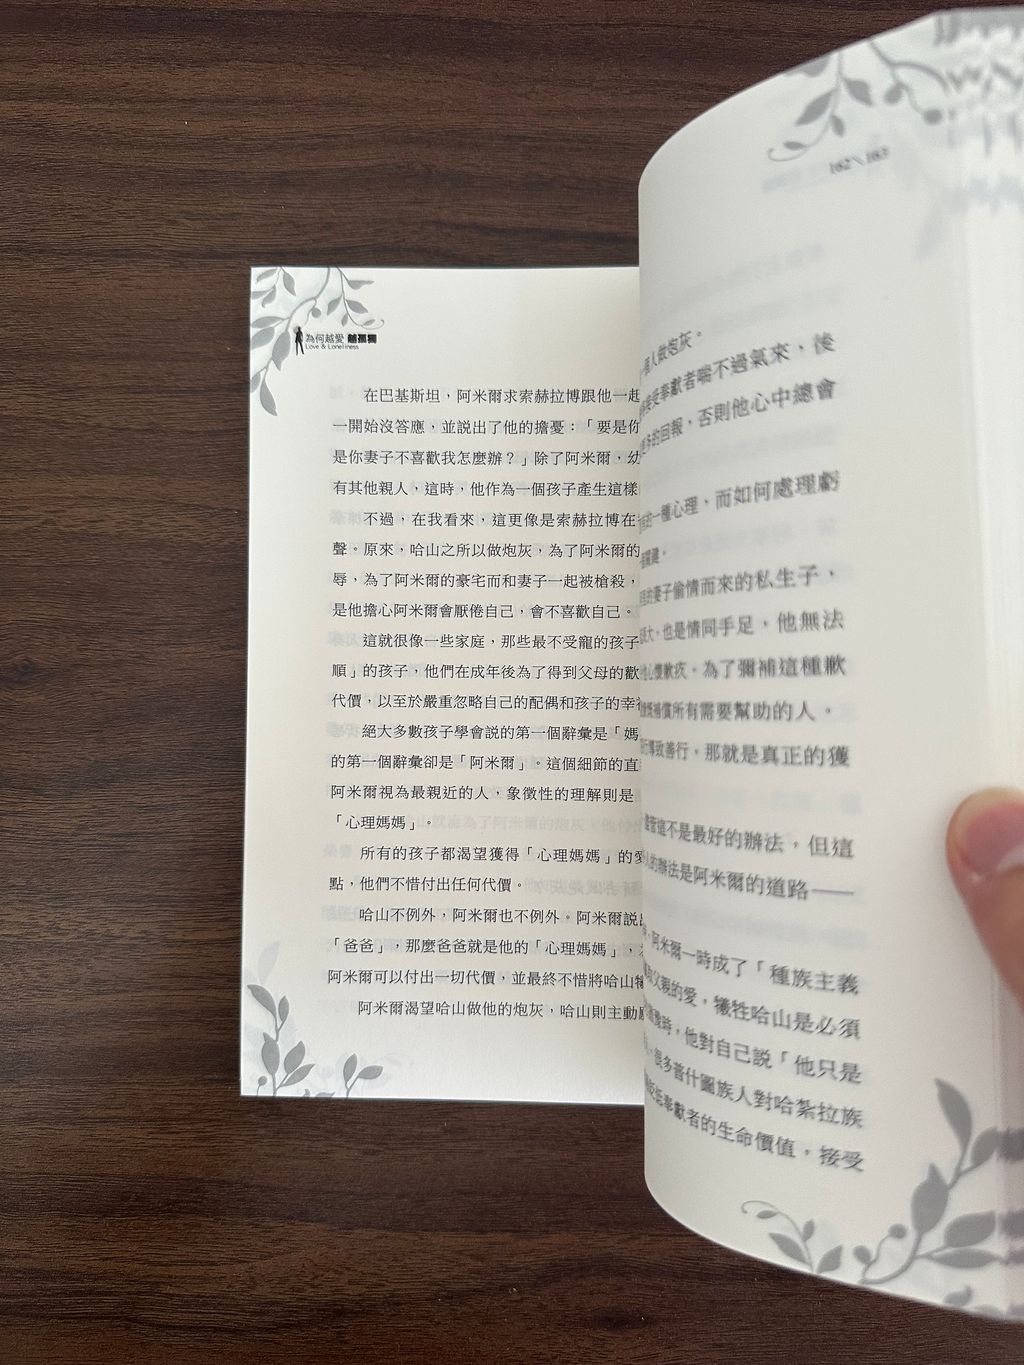 為何越愛 越孤獨
Love & Loneliness
在巴基斯坦，阿米爾求索赫拉博跟他一起
一開始沒答應，並説出了他的擔憂：「要是你
是你妻子不喜歡我怎麼辦？」除了阿米爾，幼
有其他親人，這時，他作為一個孩子產生這樣
不過，在我看來，這更像是索赫拉博在
聲。原來，哈山之所以做炮灰，為了阿米爾的
辱，為了阿米爾的豪宅而和妻子一起被槍殺，
是他擔心阿米爾會厭倦自己，會不喜歡自己。
這就很像一些家庭，那些最不受寵的孩子
順」的孩子，他們在成年後為了得到父母的歡
代價，以至於嚴重忽略自己的配偶和孩子的幸
絕大多數孩子學會説的第一個辭彙是「媽
的第一個辭彙卻是「阿米爾」。這個細節的直
阿米爾視為最親近的人，象徵性的理解則是
「心理媽媽」。
所有的孩子都渴望獲得「心理媽媽」的愛
點，他們不惜付出任何代價。
哈山不例外，阿米爾也不例外。阿米爾説
「爸爸」，那麼爸爸就是他的「心理媽媽」，
阿米爾可以付出一切代價，並最終不惜將哈山
阿米爾渴望哈山做他的炮灰，哈山則主動
162＼163
人做炮灰。
接受奉獻者喘不過氣來，後
多的回報，否則他心中總會
的一種心理，而如何處理虧
關鍵。
的妻子偷情而來的私生子，
大，也是情同手足，他無法
心懷歉疚。為了彌補這種歉
補償所有需要幫助的人。
導致善行，那就是真正的獲
儘管這不是最好的辦法，但這
人的辦法是阿米爾的道路——
，阿米爾一時成了「種族主義
父親的愛，犧牲哈山是必須
時，他對自己説「他只是
，很多普什圖族人對哈紮拉族
奉獻者的生命價值，接受